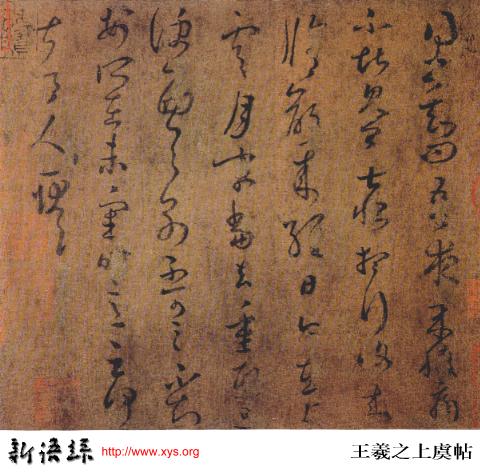 得書知問吾夜來腹痛
不堪見卿甚恨想行復來
脩齡來經日今在上
虞月末當去重熙旦
便西與別不可言不知
安所在未審時意云何
甚令人耿耿
新語絲 http://www.xys.org 王羲之上虞帖